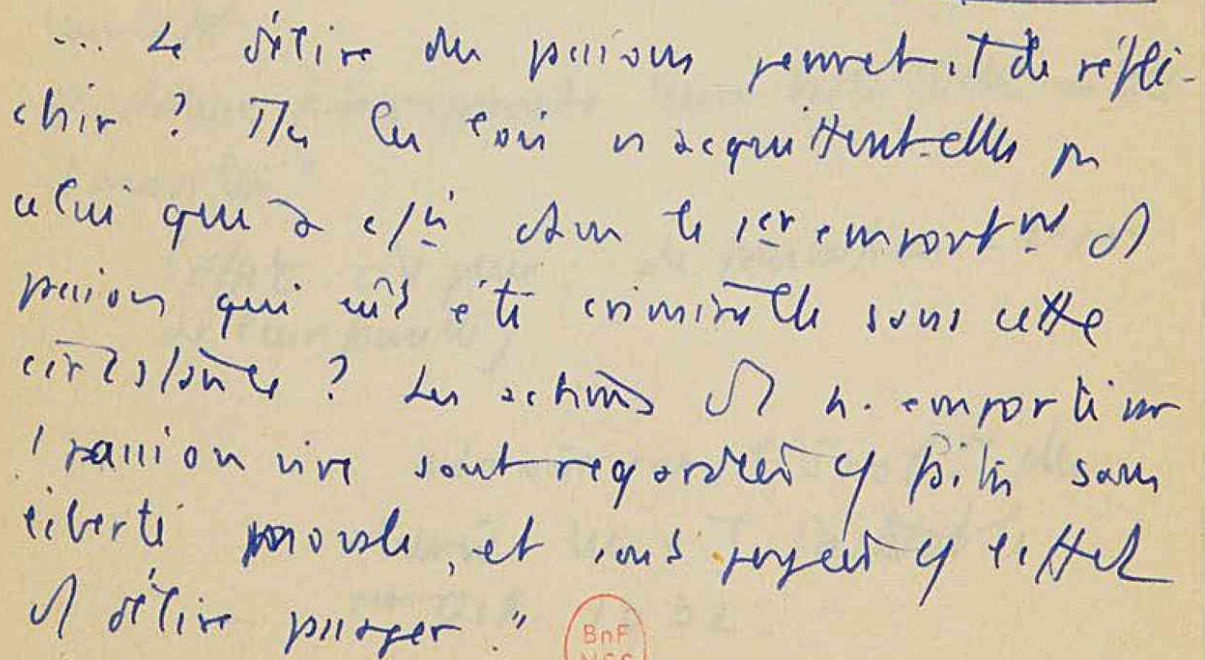 ... Le délire des passions permet-il de réflé-
chir ? Les lois n'acquittent-elles pas
celui que a été dans le 1er emportt
passion qui eût été criminelle sans cette
circonstance ? Les actions emporté
passion vive sont regardées faites sans
liberté morale, et sont jugées l'effet
délire passager "
BnF
MSS